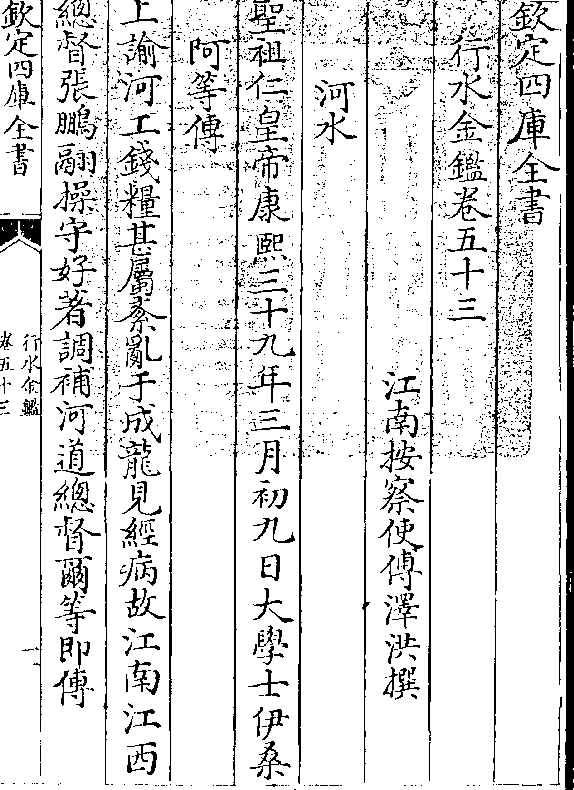 欽定四庫全書
行水金鑑卷五十三
江南按察使傅澤洪撰
河水
聖祖仁皇帝康熙三十九年三月初九日大學士伊桑
阿等傳
上諭河工錢糧甚屬紊亂于成龍見經病故江南江西
總督張鵬翮操守好著調補河道總督爾等即傳
欽定四庫全書
行水金鑑
卷五十三
一